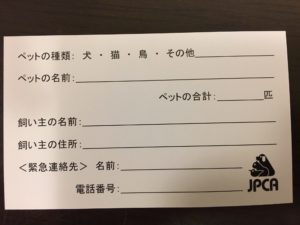 ペットの種類： 犬 ・ 猫 ・ 鳥 ・ その他
ペットの名前：
ペットの合計： 匹
飼い主の名前：
飼い主の住所：
＜緊急連絡先＞ 名前：
電話番号：
JPCA